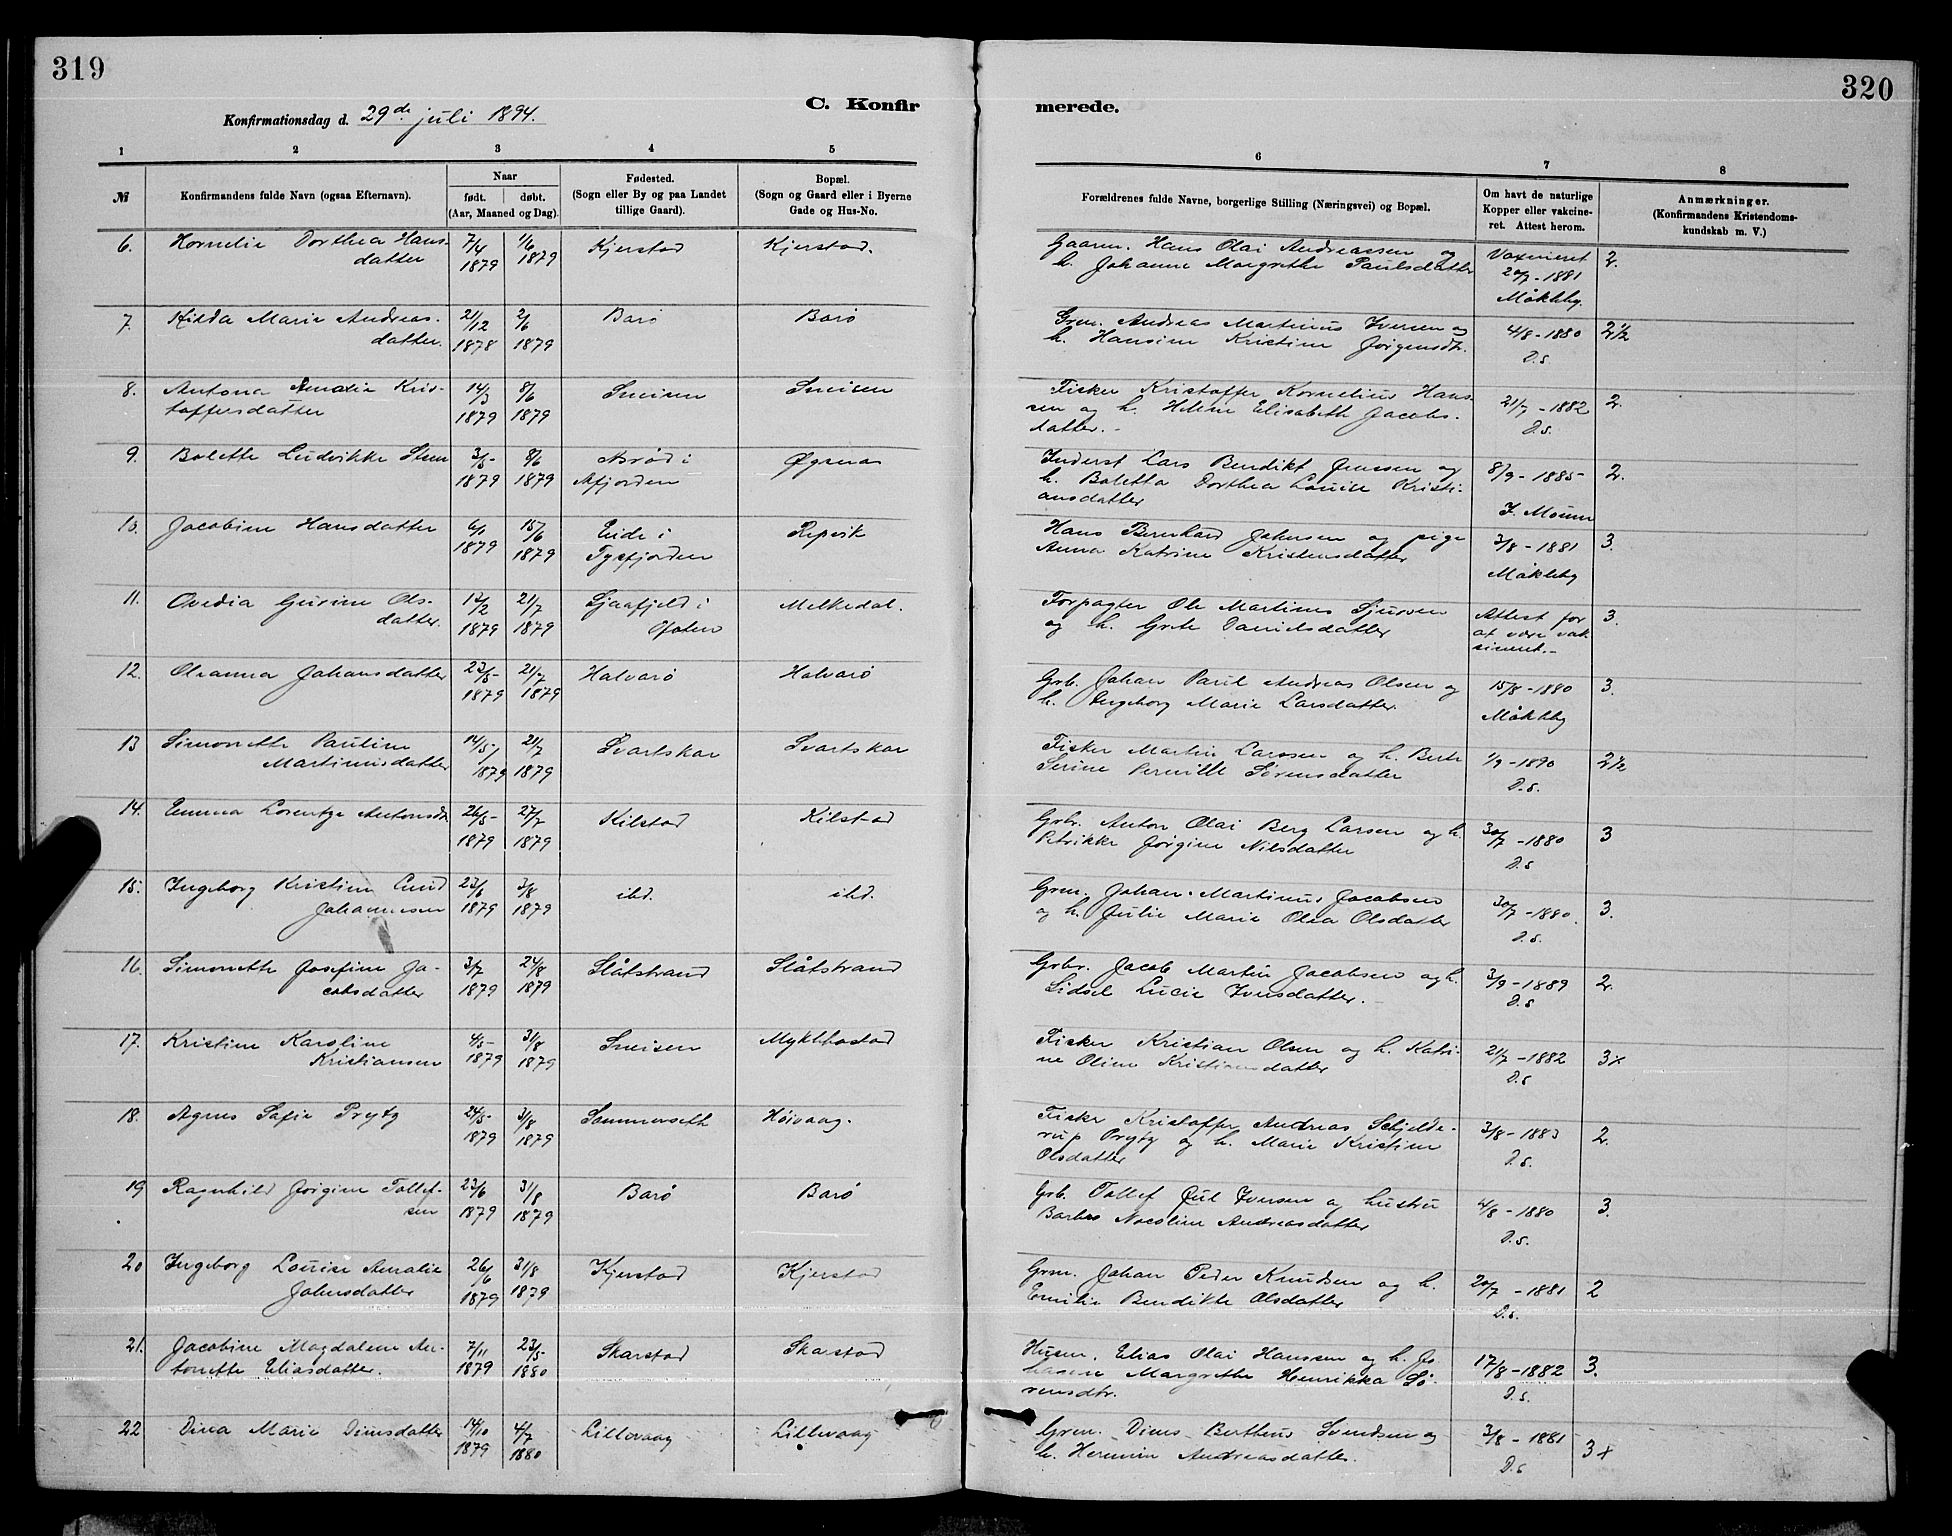 319
320
C. Konfir
merede.
Konfirmationsdag d. 29de juli 1894.
1 2 3 4 5
6 7 8
№ Konfirmandens fulde Navn (ogsaa Efternavn). Naar født. døbt. (Aar, Maaned og Dag). Fødested. (Sogn eller By og paa Landet tillige Gaard). Bopæl. (Sogn og Gaard eller i Byerne Gade og Hus-No.
Forældrenes fulde Navne, borgerlige Stilling (Næringsvei) og Bopæl. Om havt de naturlige Kopper eller vakcineret. Attest herom. Anmærkninger. (Konfirmandens Kristendomskundskab m. V.)
6. Kornelie Dorthea Hans- 7/4 1/6 Kjerstad Kjerstad. Gaarm. Hans Olai Andreassen og Vaxineret 2.
datter 1879 1879 h. Johanne Margrethe Paulsdatter 20/7 - 1881
Møkleby.
7. Hilda Marie Andreas- 21/12 2/6 Barø Barø Grm. Andreas Martinus Iversen og 4/8 - 1880 2½
datter. 1878 1879 h. Hansine Kristine Jørgensdtr. D.s.
8. Antona Amalie Kris- 14/3 8/6 Sneisen Sneisen Fisker Kristoffer Kornelius Hans- 21/7 - 1882 2.
toffersdatter 1879 1879 sen og h. Helene Elisabeth Jacobs- D.s.
datter. -
9. Bolette Ludvikke 3/5 8/6 i Inderst Lars Bendikt Jenssen og 8/9 - 1885 2.
1879 1879 Afjorden h. Boletta Dorthea Louise Kristi-
ansdatter J. Moum
10. Jacobine Hansdatter 6/1 15/6 Eide i Repvik Hans Bernhard Johnsen og pige 3/8 - 1881 3.
1879 1879 Tysfjorden Anna Katrine Kristensdatter Møkleby
11. Ovedia Gurine Ols- 12/2 21/7 i Melkedal. Forpagter Ole Martinus Sjursen Attest for 3.
datter. 1879 1879 Ofoten og h. Grete Danielsdatter at være vak-
sineret. -
12. Oleanna Johansdatter 23/5 21/7 Halvarø Halvarø Grb. Johan Paul Andreas Olsen og 15/8 - 1880 3.
1879 1879 h. Ingeborg Marie Larsdatter. Møkleby
13 Simonette Pauline 14/5 21/7 Svartskar Svartskar Fisker Martin Larssen og h. Berte 1/9 - 1890 2½
Martinusdatter 1879 1879 Serine Pernille Sørensdatter D.s.
14. Emma Lorentze Antonsdtr 26/5 27/7 Kilstad Kilstad Grbr. Anton Olai Berg Larsen og h. 30/7 - 1880 3
1879 1879 Petrikke Jørgine Nilsdatter D.s
15. Ingeborg Kristine Lund 23/6 3/8 ibd. ibd. Grm. Johan Martinus Jacobsen 30/7 - 1880. 3.
Johannesen 1879 1879 og h. Julie Marie Olea Olsdatter D.s.
16. Simonette Josefine Ja- 3/7 24/8 Slåtstrand Slåtstrand Grbr. Jacob Martin Jacobsen og h. 3/9 - 1889 2.
cobsdatter 1879 1879 Sidsel Lucie Iversdatter. - D.s
17. Kristine Karoline 4/5 31/8 Sneisen Myklbostad Fisker Kristian Olsen og h. Katri- 21/7 - 1882 3+
Kristiansen 1879 1879 ne Oline Kristiansdatter D.s
18. Agnes Sofie Prytz 24/5 31/8 Sommerseth Høivaag. Fisker Kristoffer Andreas Schjelde- 3/8 - 1883 2.
1879 1879 rup Prytz og h. Marie Kristine D.s.
Olsdatter
19 Ragnhild Jørgine Tollef- 23/6 31/8 Barø Barø Grb. Tollef Jul Iversen og hustru 4/8 - 1880 3.
sen 1879 1879 Barbro Nocoline Andreasdatter D.s.
20 Ingeborg Louise Amalie 26/6 31/8 Kjerstad Kjerstad Grm. Johan Peder Knudsen og h. 20/7 - 1881 2
Johansdatter 1879 1879 Emilie Bendikte Olsdatter D.s.
21. Jacobine Magdalene An- 7/11 23/5 Skarstad Skarstad Husm. Elias Olai Hanssen og h. Jo 17/8 - 1882 3.
tonette Eliasdatter. 1879 1880 hanne Margrethe Henrikka Sø- D.s.
rensdtr.
22 Dina Marie Dinusdatter 14/10 4/7 Lillevaag Lillevaag Grm. Dinus Bertheus Svendsen og 3/8 - 1881 3+
1879 1880 h. Hermine Andreasdatter. D.s